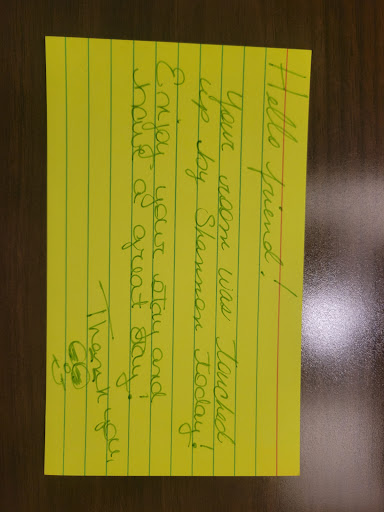 Hello friend!
Your room was touched
up by Shannon today!
Enjoy your stay and
have a great day!
Thank you,